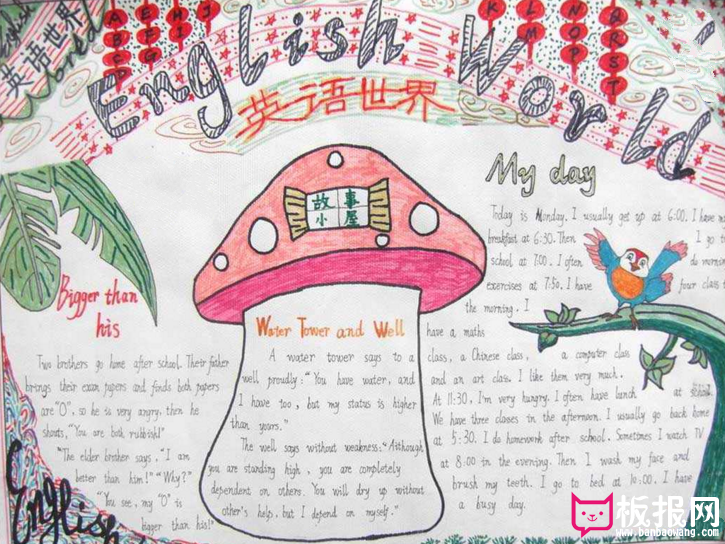 英语世界
English World
A B C D
E F G
H I
J
K
L M
N O P
Q R S T
English World
英语世界
故事
小屋
My day
Today is Monday. I usually get up at 6:00. I have
breakfast at 6:30. Then I go
school at 7:00. I often do morning
exercises at 7:50. I have four class
the morning. I
have a maths
class, a Chinese class, a computer class
and an art class. I like them very much.
At 11:30, I'm very hungry. I often have lunch at school.
We have three classes in the afternoon. I usually go back home
at 5:30. I do homework after school. Sometimes I watch TV
at 8:00 in the evening. Then I wash my face and
brush my teeth. I go to bed at 10:00. I have
a busy day.
Bigger than
his
Two brothers go home after school. Their father
brings their exam papers and finds both papers
are "0", so he is very angry, then he
shouts, "You are both rubbish!"
"The elder brother says, "I am
better than him!" "Why?"
"You see, my "0" is
bigger than his!"
Water Tower and Well
A water tower says to a
well proudly: "You have water, and
I have too, but my status is higher
than yours."
The well says without weakness: "Although
you are standing high, you are completely
dependent on others. You will dry up without
other's help, but I depend on myself."
English
板报网
www.banbaowang.com